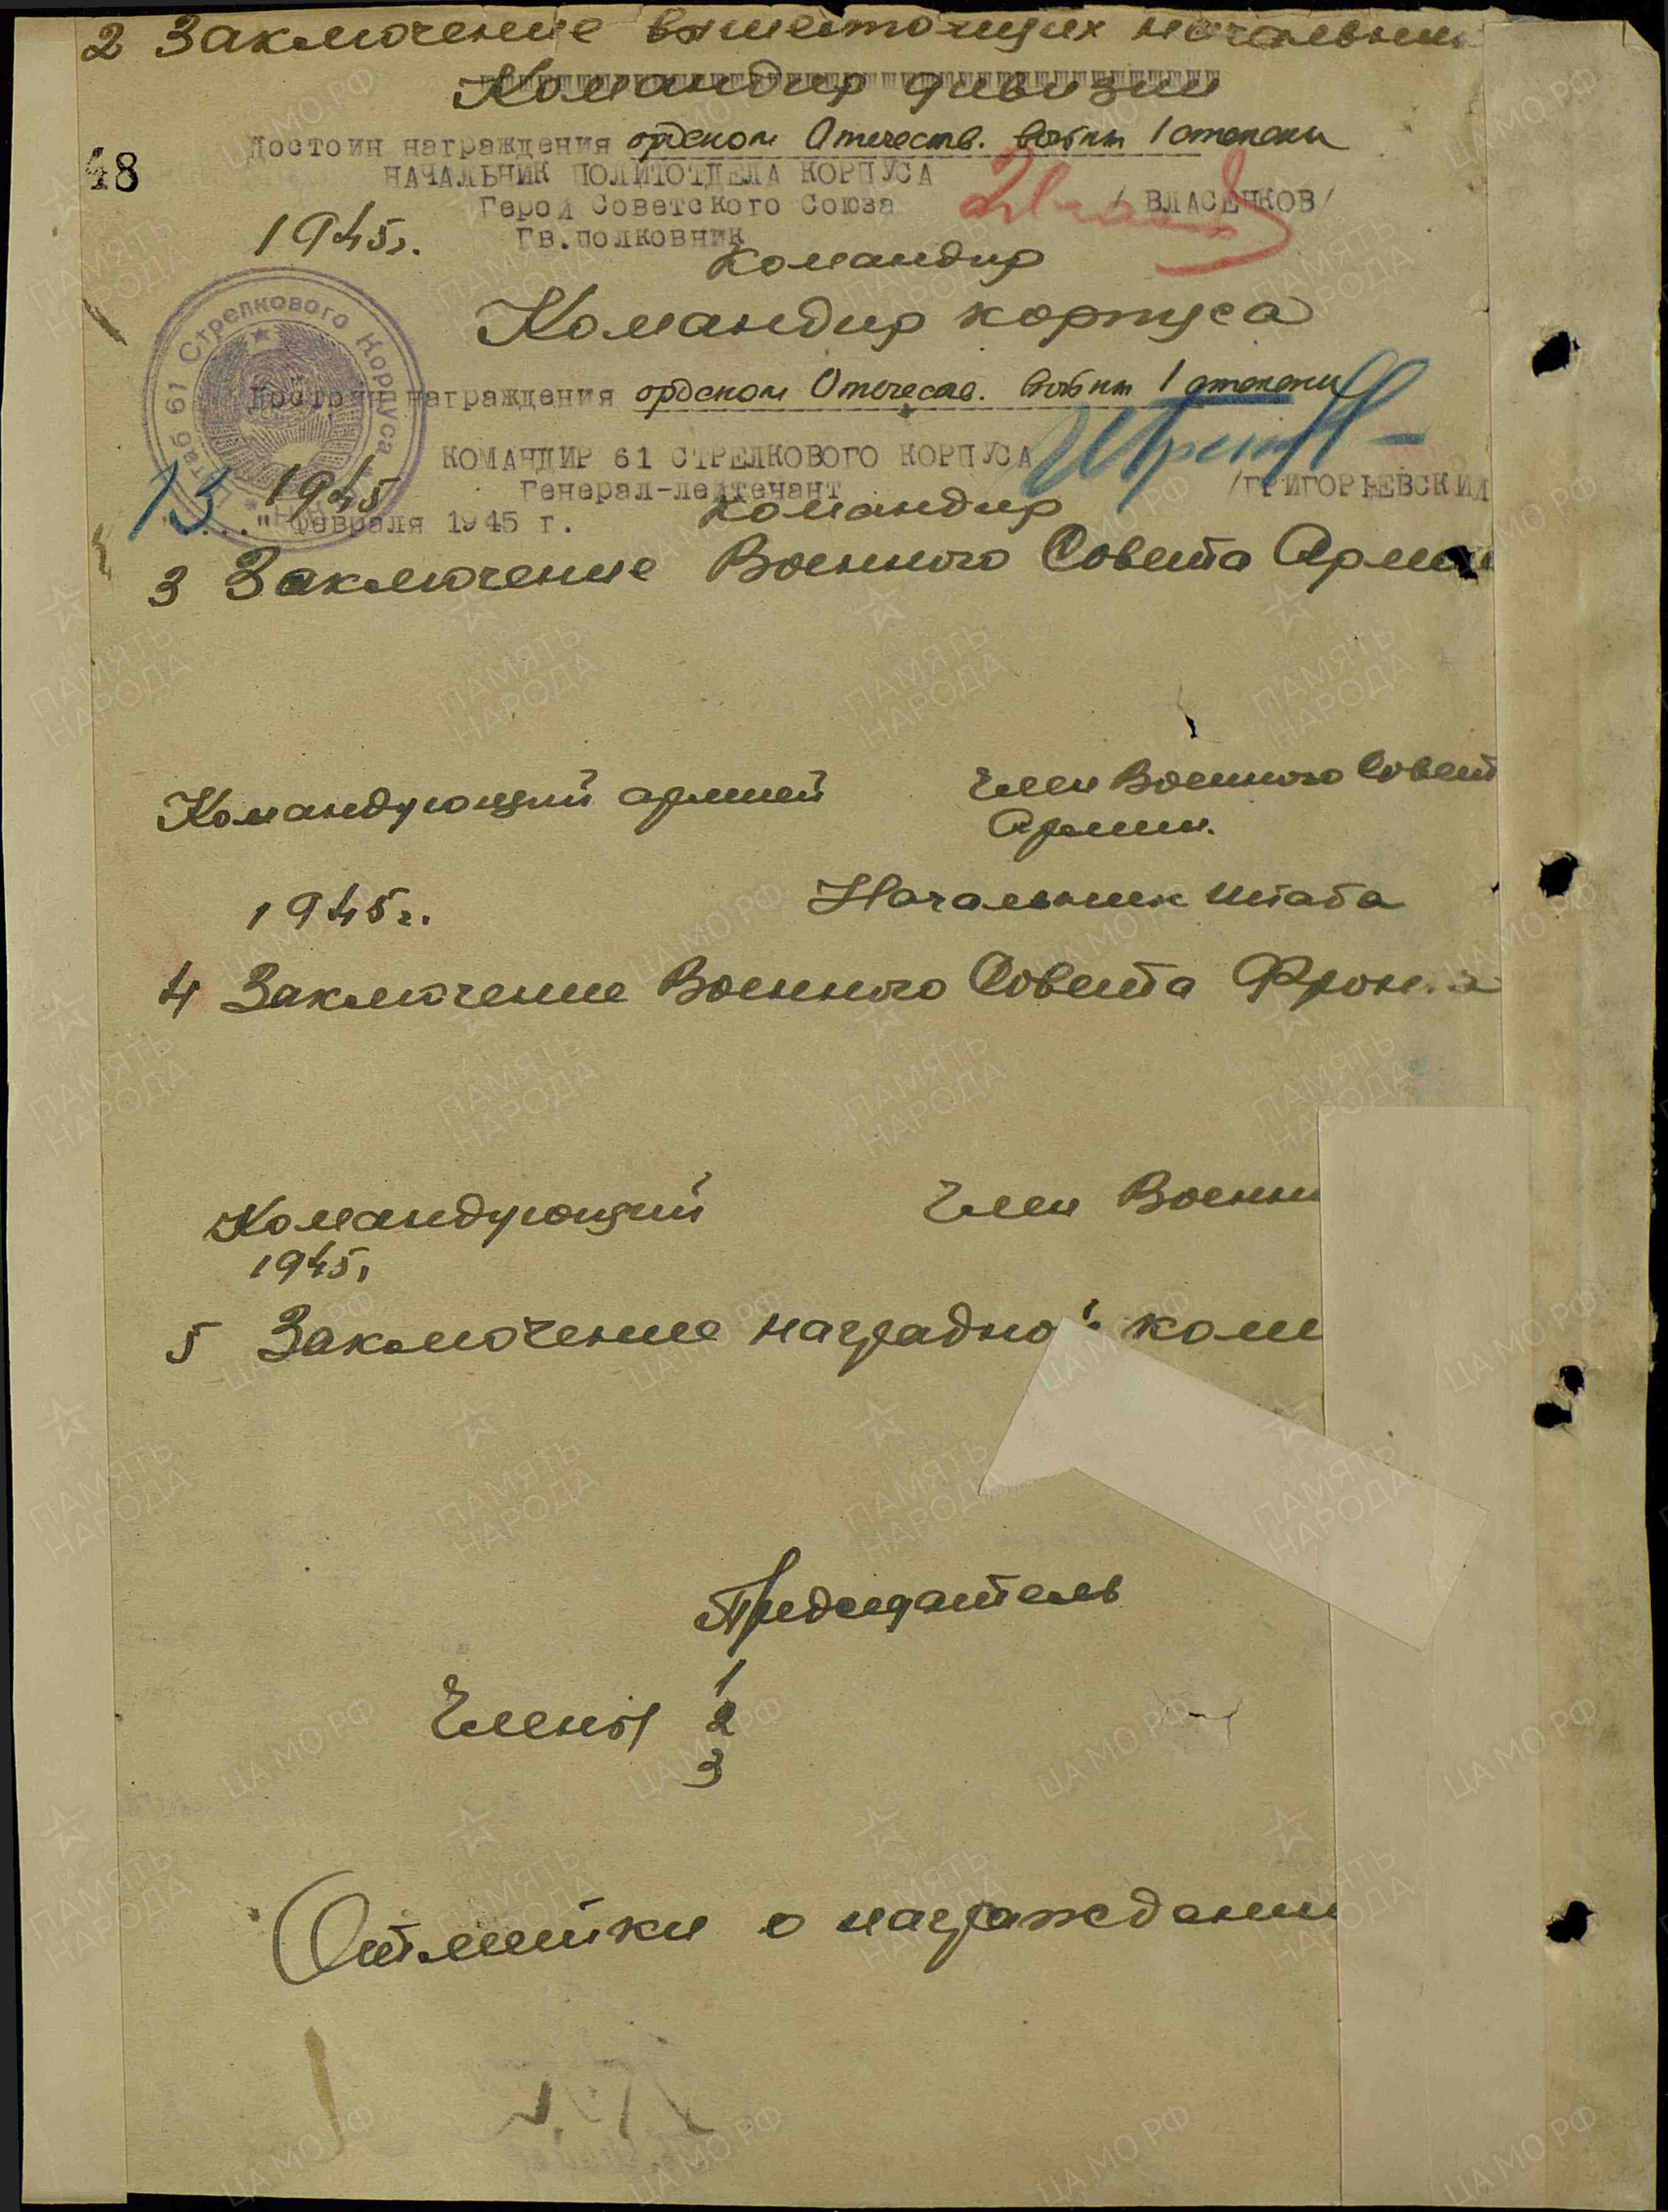 2 Заключение вышестоящих начальник
Командир дивизии
Достоин награждения орденом Отечеств. войны 1 степени
48
НАЧАЛЬНИК ПОЛИТОТДЕЛА КОРПУСА
Герой Советского Союза / ВЛАСЕНКОВ/
1945г. Гв.полковник
Командир
Командир корпуса
Штаб 61 Стрелкового Корпуса
Достоин награждения орденом Отечеств. войны 1 степени
КОМАНДИР 61 СТРЕЛКОВОГО КОРПУСА
Генерал-лейтенант /ГРИГОРЬЕВСКИЙ
1945 Командир
13 " февраля 1945 г.
3 Заключение Военного Совета Арми
Командующий армией Член Военного Совет
Армии.
1945г. Начальник штаба
4 Заключение Военного Совета Фронта
Командующий Член Военн
1945г
5 Заключение наградной ком
Председатель
1
Члены 2
3
Отметки о награждени